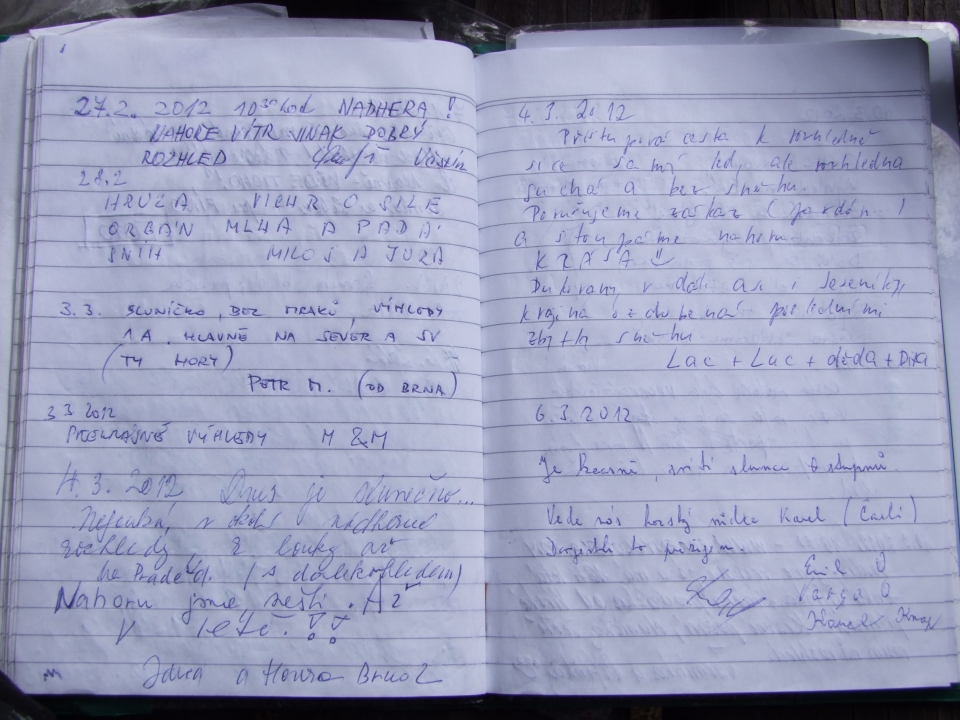 27.2. 2012 10³⁰ hod NÁDHERA!
NAHOŘE VÍTR JINAK DOBRÝ
ROZHLED
28.2
HRŮZA VICHR O SÍLE
ORGÁN MLHA A PADÁ
SNÍH MILOŠ A JURA
3.3. SLUNÍČKO, BEZ MRAKŮ, VÝHLEDY
1A. HLAVNĚ NA SEVER A SV
(TY HORY)
PETR M. (OD BRNA)
3 3 2012
PŘEKRÁSNÉ VÝHLEDY M & M
4.3. 2012 Dnes je slunečno...
v okolí nádherné
rozhledy, z louky až
na Praděd. (s dalekohledem)
Nahoru jsme nešli. Až
v létě.!!
Jdura a Honza
4.3. 2012
Přístupová cesta k rozhledně
sice samý led, ale rozhledna
suchá a bez sněhu.
Porušujeme zákaz (pardón)
a stoupáme nahoru.
KRÁSA
Dukovany v dáli asi i Jeseníky,
krajina ozdobená posledními
zbytky sněhu
Lac + Luc + děda + Dixa
6.3. 2012
Je krásně, svítí slunce, 8 stupňů.
Vede nás horský vůdce Karel (Čarli)
Emil
Varga
Karel